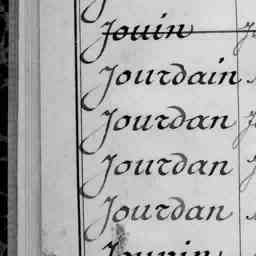 Jouin
Jourdain
Jourdan
Jourdan
Jourdan